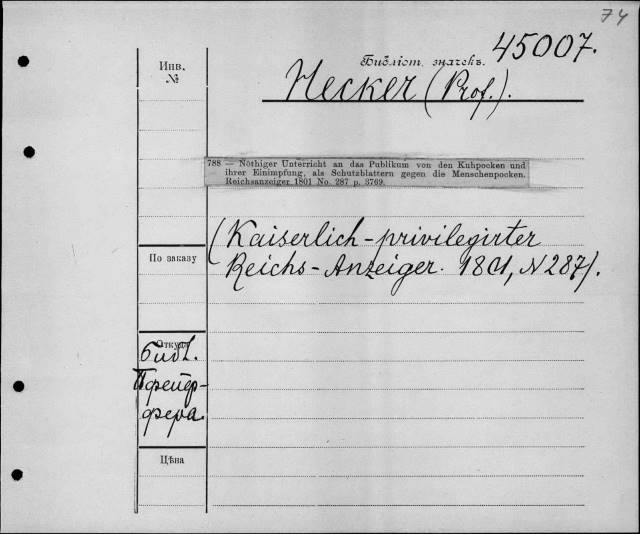 74
Библіот. значекъ.
45007.
Инв.
№
Hecker (Prof.).
788 — Nöthiger Unterricht an das Publikum von den Kuhpocken und
ihrer Einimpfung, als Schutzblattern gegen die Menschenpocken.
Reichsanzeiger 1801 No. 287 p. 3769.
(Kaiserlich-privilegirter
Reichs-Anzeiger. 1801, N 287).
По заказу
Откуда
библ.
Пфейф-
фера.
Цѣна